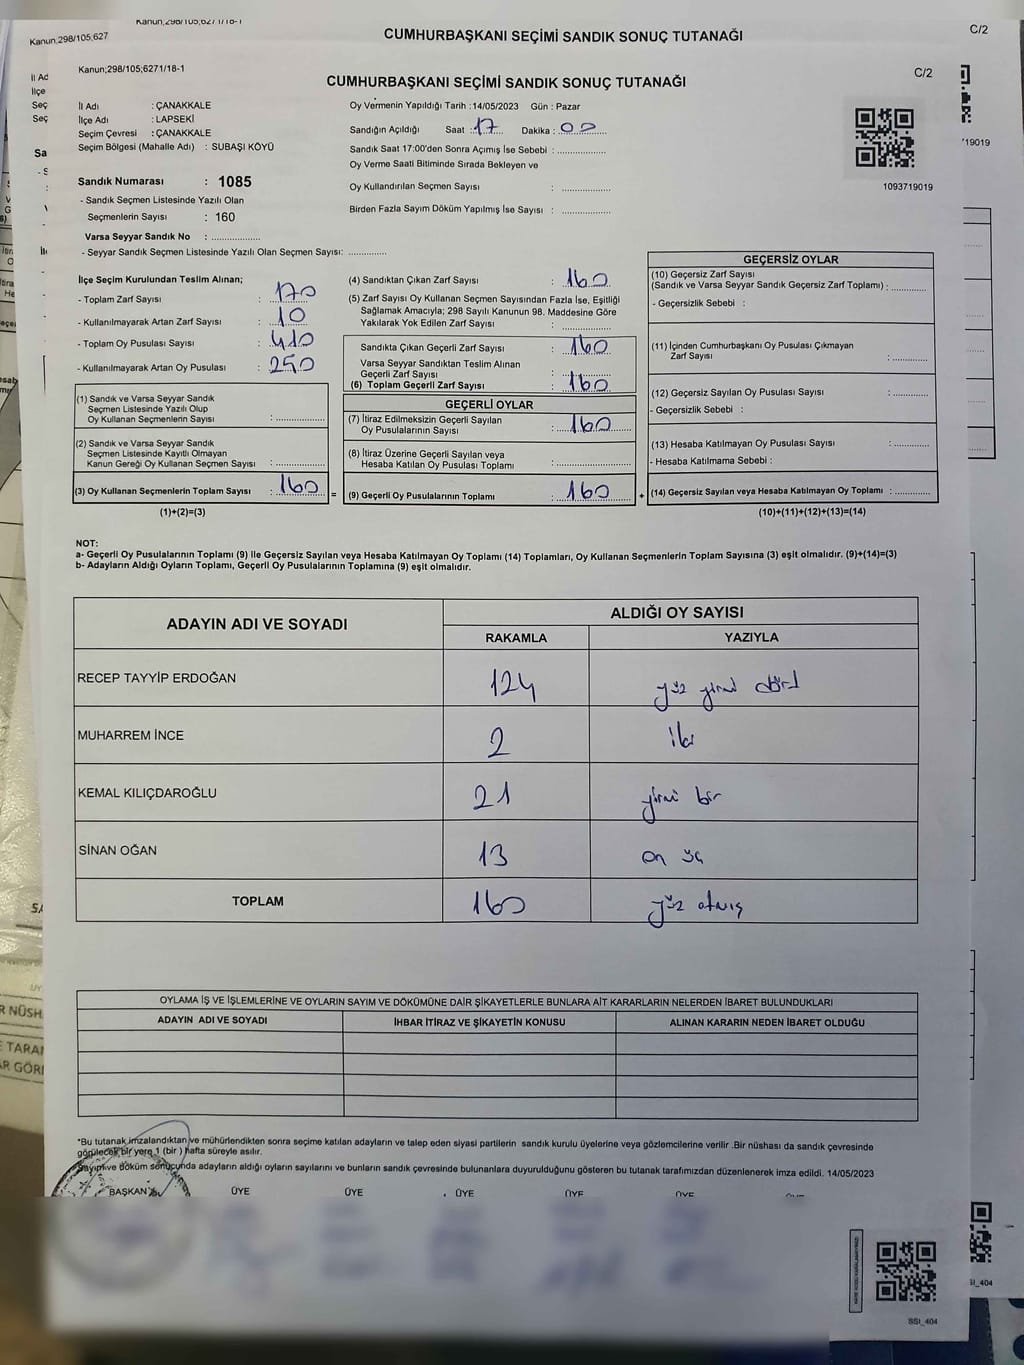 Kanun;298/105;6271/18-1
Kanun;298/105,627
CUMHURBAŞKANI SEÇİMİ SANDIK SONUÇ TUTANAĞI
C/2
Kanun;298/105;6271/18-1
CUMHURBAŞKANI SEÇİMİ SANDIK SONUÇ TUTANAĞI
C/2
İl Adı : ÇANAKKALE
İlçe Adı : LAPSEKİ
Seçim Çevresi : ÇANAKKALE
Seçim Bölgesi (Mahalle Adı) : SUBAŞI KÖYÜ
Oy Vermenin Yapıldığı Tarih :14/05/2023 Gün : Pazar
Sandığın Açıldığı Saat : 17 Dakika : 00
Sandık Saat 17:00'den Sonra Açımış İse Sebebi : ................
Oy Verme Saati Bitiminde Sırada Bekleyen ve
Oy Kullandırılan Seçmen Sayısı : ................
Birden Fazla Sayım Döküm Yapılmış İse Sayısı : ................
1093719019
Sandık Numarası : 1085
- Sandık Seçmen Listesinde Yazılı Olan
Seçmenlerin Sayısı : 160
Varsa Seyyar Sandık No : ................
- Seyyar Sandık Seçmen Listesinde Yazılı Olan Seçmen Sayısı: .............
İlçe Seçim Kurulundan Teslim Alınan;
- Toplam Zarf Sayısı : 170
- Kullanılmayarak Artan Zarf Sayısı : 10
- Toplam Oy Pusulası Sayısı : 410
- Kullanılmayarak Artan Oy Pusulası : 250
(1) Sandık ve Varsa Seyyar Sandık
Seçmen Listesinde Yazılı Olup
Oy Kullanan Seçmenlerin Sayısı : ................
(2) Sandık ve Varsa Seyyar Sandık
Seçmen Listesinde Kayıtlı Olmayan
Kanun Gereği Oy Kullanan Seçmen Sayısı : ................
(3) Oy Kullanan Seçmenlerin Toplam Sayısı : 160 =
(1)+(2)=(3)
(4) Sandıktan Çıkan Zarf Sayısı : 160
(5) Zarf Sayısı Oy Kullanan Seçmen Sayısından Fazla İse, Eşitliği
Sağlamak Amacıyla; 298 Sayılı Kanunun 98. Maddesine Göre
Yakılarak Yok Edilen Zarf Sayısı : ................
Sandıkta Çıkan Geçerli Zarf Sayısı : 160
Varsa Seyyar Sandıktan Teslim Alınan
Geçerli Zarf Sayısı : ................
(6) Toplam Geçerli Zarf Sayısı : 160
GEÇERLİ OYLAR
(7) İtiraz Edilmeksizin Geçerli Sayılan
Oy Pusulalarının Sayısı : 160
(8) İtiraz Üzerine Geçerli Sayılan veya
Hesaba Katılan Oy Pusulası Toplamı : ................
(9) Geçerli Oy Pusulalarının Toplamı : 160 +
GEÇERSİZ OYLAR
(10) Geçersiz Zarf Sayısı
(Sandık ve Varsa Seyyar Sandık Geçersiz Zarf Toplamı) : ............
- Geçersizlik Sebebi :
(11) İçinden Cumhurbaşkanı Oy Pusulası Çıkmayan
Zarf Sayısı : ............
(12) Geçersiz Sayılan Oy Pusulası Sayısı : ............
- Geçersizlik Sebebi :
(13) Hesaba Katılmayan Oy Pusulası Sayısı : ............
- Hesaba Katılmama Sebebi :
(14) Geçersiz Sayılan veya Hesaba Katılmayan Oy Toplamı : ............
(10)+(11)+(12)+(13)=(14)
NOT:
a- Geçerli Oy Pusulalarının Toplamı (9) ile Geçersiz Sayılan veya Hesaba Katılmayan Oy Toplamı (14) Toplamları, Oy Kullanan Seçmenlerin Toplam Sayısına (3) eşit olmalıdır. (9)+(14)=(3)
b- Adayların Aldığı Oyların Toplamı, Geçerli Oy Pusulalarının Toplamına (9) eşit olmalıdır.
ADAYIN ADI VE SOYADI
ALDIĞI OY SAYISI
RAKAMLA YAZIYLA
RECEP TAYYİP ERDOĞAN 124 yüz yirmi dört
MUHARREM İNCE 2 iki
KEMAL KILIÇDAROĞLU 21 yirmi bir
SİNAN OĞAN 13 on üç
TOPLAM 160 yüz atmış
OYLAMA İŞ VE İŞLEMLERİNE VE OYLARIN SAYIM VE DÖKÜMÜNE DAİR ŞİKAYETLERLE BUNLARA AİT KARARLARIN NELERDEN İBARET BULUNDUKLARI
ADAYIN ADI VE SOYADI İHBAR İTİRAZ VE ŞİKAYETİN KONUSU ALINAN KARARIN NEDEN İBARET OLDUĞU
*Bu tutanak imzalandıktan ve mühürlendikten sonra seçime katılan adayların ve talep eden siyasi partilerin sandık kurulu üyelerine veya gözlemcilerine verilir .Bir nüshası da sandık çevresinde
görülecek bir yere 1 (bir ) hafta süreyle asılır.
Sayım ve döküm sonucunda adayların aldığı oyların sayılarını ve bunların sandık çevresinde bulunanlara duyurulduğunu gösteren bu tutanak tarafımızdan düzenlenerek imza edildi. 14/05/2023
BAŞKAN ÜYE ÜYE ÜYE ÜYE ÜYE ÜYE
SSI_404